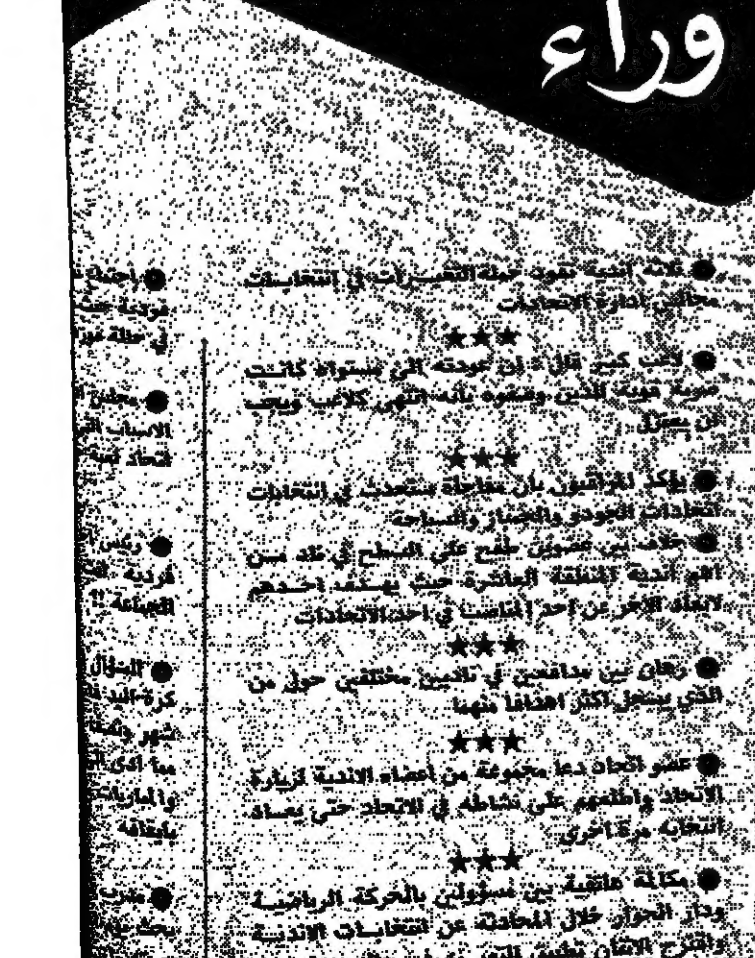 وراء
● ثلاثة أندية تقود حملة التغييرات في انتخابات
مجالس إدارة الاتحادات
★★★
● لاعب كبير قال : إن عودته الى مستواه كانت
ضربة قوية للذين وصفوه بأنه انتهى كلاعب ويجب
أن يعتزل
★★★
● يؤكد المراقبون بأن مفاجأة ستحدث في انتخابات
اتحادات الجودو والجمباز والسباحة
● خلاف بين عضوين طفح على السطح في
أهم أندية المنطقة العاشرة حيث يهدف احدهم
لابعاد الآخر عن احد المناصب في احد الاتحادات
★★★
● رهان بين مدافعين في ناديين مختلفين حول من
الذي يسجل اكثر اهدافا منهما
★★★
● عضو اتحاد دعا مجموعة من اعضاء الاندية لزيارة
الاتحاد واطلعهم على نشاطه في الاتحاد حتى يعاد
انتخابه مرة اخرى
★★★
● مكالمة هاتفية بين مسؤولين بالحركة الرياضية
ودار الحوار خلال المحادثة عن انتخابات الاندية
واقترح الاثنان تطبيق
● 
فردية
في حالة
● مجلس
الاسباب
اتحاد لعبة
● رئيس
فردية
الجماعة !!
● السؤال
كرة اليد
شهر
مما ادى
والمباريات
بايقافه
● مدرب
يبحث